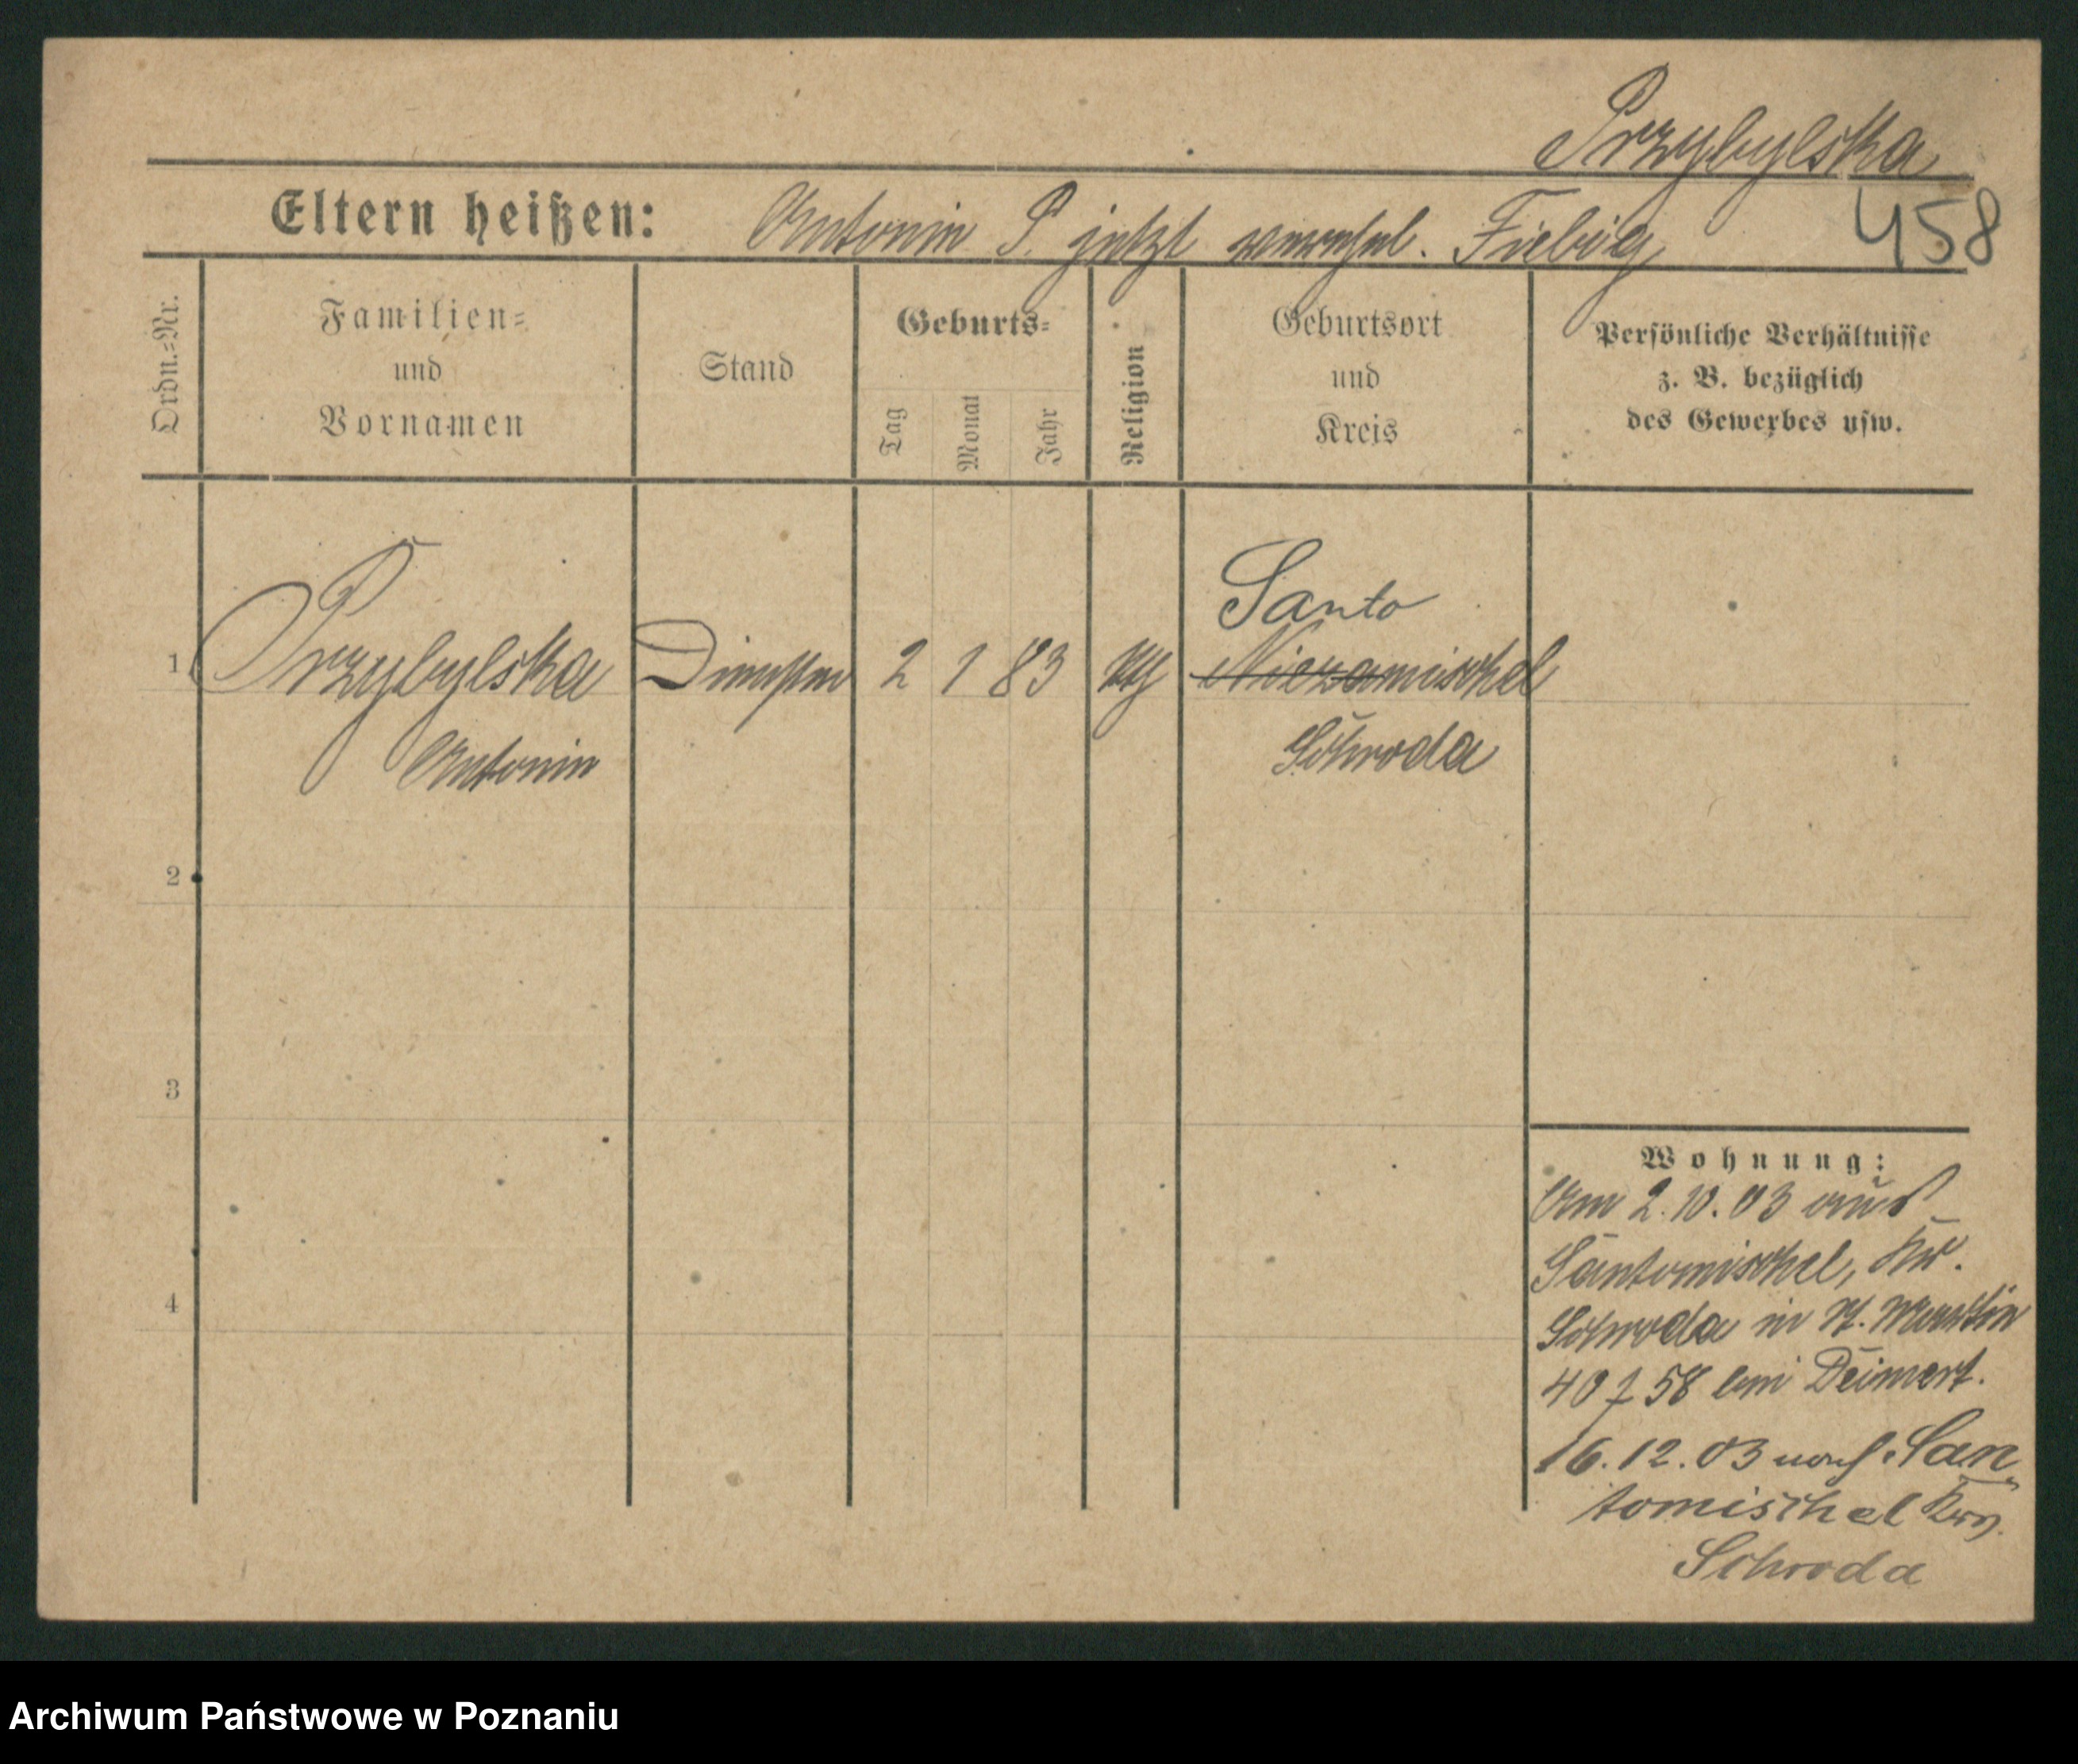 Przybylska
Eltern heißen: Antonie P. jetzt verehel. Fiebig
458
Ordn.-Nr.
Familien-
und
Vornamen
Stand
Geburts-
Tag
Monat
Jahr
Religion
Geburtsort
und
Kreis
Persönliche Verhältnisse
z. B. bezüglich
des Gewerbes usw.
Santo
1 Przybylska 2 1 83 Niezamischel
Antonie Schroda
2
3
4
Wohnung:
Am 2.10.03 aus
Santomischel, Kr.
Schroda in St. Martin
40 58 bei
16.12.03 nach San-
tomischel Krs.
Schroda
Archiwum Państwowe w Poznaniu